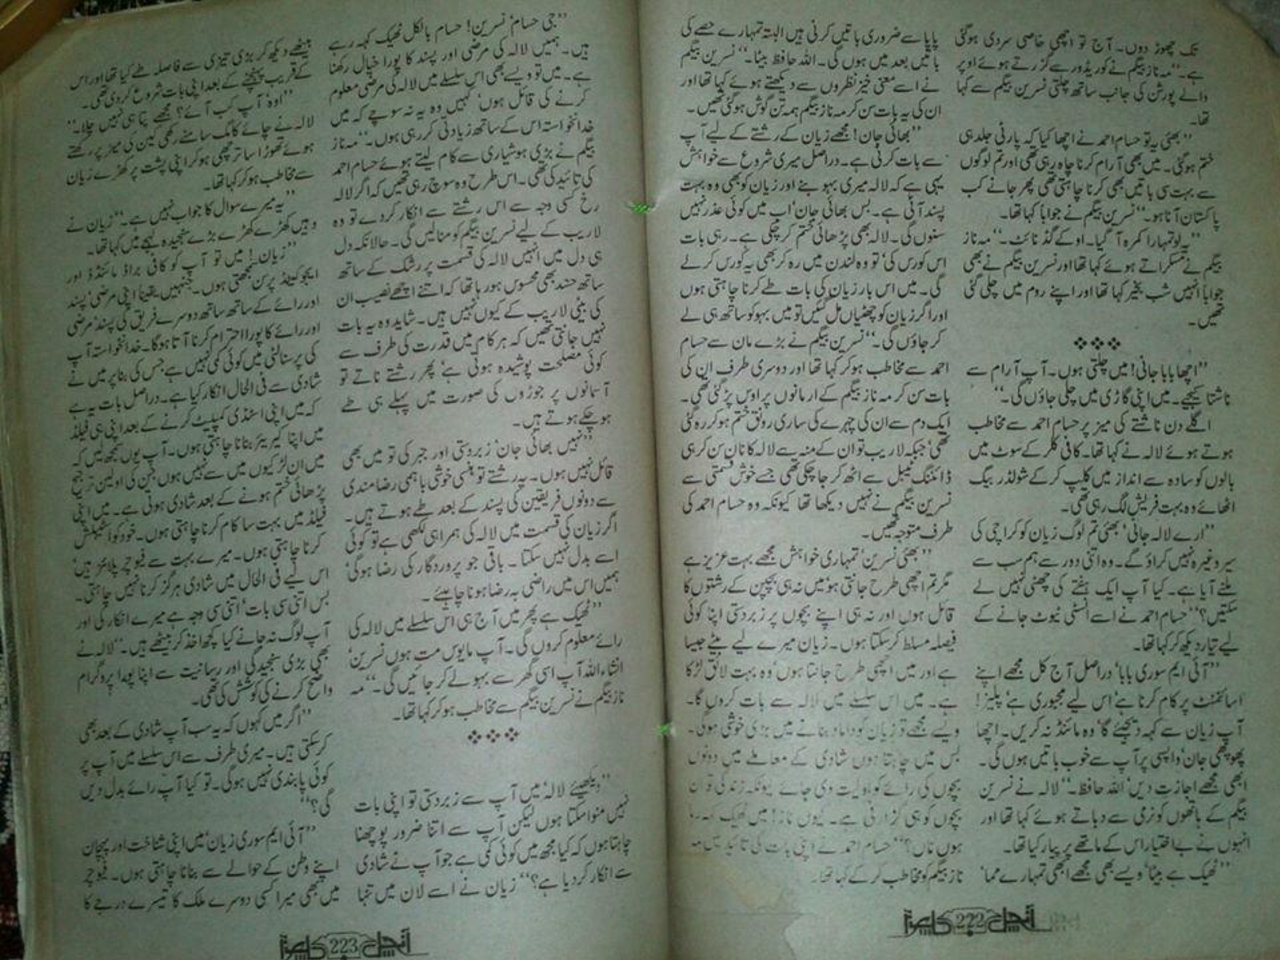 تک چھوڑ دوں۔ آج تو اچھی خاصی سردی ہوگئی
ہے۔“ مہ ناز بیگم نے کوریڈور سے گزرتے ہوئے اوپر
والے پورشن کی جانب ساتھ چلتی نسرین بیگم سے کہا
تھا۔
”بھئی یہ تو حسام احمد نے اچھا کیا کہ پارٹی جلد ہی
ختم ہوگئی۔ میں بھی آرام کرنا چاہ رہی تھی اور تم لوگوں
سے بہت سی باتیں بھی کرنا چاہتی تھی پھر جانے کب
پاکستان آنا ہو۔“ نسرین بیگم نے جواباً کہا تھا۔
”یہ لو تمہارا کمرہ آ گیا۔ اوکے گڈ نائٹ۔“ مہ ناز
بیگم نے مسکراتے ہوئے کہا تھا اور نسرین بیگم نے بھی
جواباً انہیں شب بخیر کہا تھا اور اپنے روم میں چلی گئی
تھیں۔
❖❖❖
”اچھا بابا جانی! میں چلتی ہوں۔ آپ آرام سے
ناشتا کیجیے۔ میں اپنی گاڑی میں چلی جاؤں گی۔“
اگلے دن ناشتے کی میز پر حسام احمد سے مخاطب
ہوتے ہوئے لالہ نے کہا تھا۔ کافی کلر کے سوٹ میں
بالوں کو سادہ سے انداز میں کلپ کر کے شولڈر بیگ
اٹھائے وہ بہت فریش لگ رہی تھی۔
”ارے لالہ جانی! بھئی تم لوگ زیان کو کراچی کی
سیر وغیرہ نہیں کراؤ گے۔ وہ اتنی دور سے ہم سب سے
ملنے آیا ہے۔ کیا آپ ایک ہفتے کی چھٹی نہیں لے
سکتیں؟“ حسام احمد نے اسے انسٹی ٹیوٹ جانے کے
لیے تیار دیکھ کر کہا تھا۔
”آئی ایم سوری بابا! دراصل آج کل مجھے اپنے
اسائمنٹ پر کام کرنا ہے‘ اس لیے مجبوری ہے پلیز!
آپ زیان سے کہہ دیجئے گا‘ وہ مائنڈ نہ کریں۔ اچھا
پھوپھی جان‘ واپسی پر آپ سے خوب باتیں ہوں گی۔
ابھی مجھے اجازت دیں‘ اللہ حافظ۔“ لالہ نے نسرین
بیگم کے ہاتھوں کو نرمی سے دباتے ہوئے کہا تھا اور
انہوں نے بے اختیار اس کے ماتھے پر پیار کیا تھا۔
”ٹھیک ہے بیٹا‘ ویسے بھی مجھے ابھی تمہارے مما
پاپا سے ضروری باتیں کرنی ہیں البتہ تمہارے حصے کی
باتیں بعد میں ہوں گی۔ اللہ حافظ بیٹا۔“ نسرین بیگم
نے اسے معنی خیز نظروں سے دیکھتے ہوئے کہا تھا اور
ان کی یہ بات سن کر مہ ناز بیگم ہمہ تن گوش ہوگئی تھیں۔
”بھائی جان! مجھے زیان کے رشتے کے لیے آپ
سے بات کرنی ہے۔ دراصل میری شروع سے خواہش
یہی ہے کہ لالہ میری بہو بنے اور زیان کو بھی وہ بہت
پسند آئی ہے۔ بس بھائی جان‘ اب میں کوئی عذر نہیں
سنوں گی۔ لالہ بھی پڑھائی ختم کر چکی ہے۔ رہی بات
اس کورس کی‘ تو وہ لندن میں رہ کر بھی یہ کورس کر لے
گی۔ میں اس بار زیان کی بات طے کرنا چاہتی ہوں
اور اگر زیان کو چھٹیاں مل گئیں تو میں بہو کو ساتھ ہی لے
کر جاؤں گی۔“ نسرین بیگم نے بڑے مان سے حسام
احمد سے مخاطب ہو کر کہا تھا اور دوسری طرف ان کی
بات سن کر مہ ناز بیگم کے ارمانوں پر اوس پڑ گئی تھی۔
ایک دم سے ان کی چہرے کی ساری رونق ختم ہو کر رہ گئی
تھی‘ جبکہ لاریب تو ان کے منہ سے لالہ کا نام سن کر ہی
ڈائننگ ٹیبل سے اٹھ کر جا چکی تھی‘ جسے خوش قسمتی سے
نسرین بیگم نے نہیں دیکھا تھا کیونکہ وہ حسام احمد کی
طرف متوجہ تھیں۔
”بھئی نسرین‘ تمہاری خواہش مجھے بہت عزیز ہے
مگر تم اچھی طرح جانتی ہو‘ میں نہ ہی بچپن کے رشتوں کا
قائل ہوں اور نہ ہی اپنے بچوں پر زبردستی اپنا کوئی
فیصلہ مسلط کر سکتا ہوں۔ زیان میرے لیے بیٹے جیسا
ہے اور میں اچھی طرح جانتا ہوں‘ وہ بہت لائق لڑکا
ہے۔ میں اس سلسلے میں لالہ سے بات کروں گا۔
ویسے مجھے تو زیان کو داماد بنانے میں بڑی خوشی ہوگی۔
بس میں چاہتا ہوں شادی کے معاملے میں دونوں
بچوں کی رائے کو اولیت دی جائے کیونکہ زندگی تو ان
بچوں کو ہی گزارنی ہے۔ کیوں ناز! میں ٹھیک کہہ رہا
ہوں ناں؟“ حسام احمد نے اپنی بات کی تائید میں مہ
ناز بیگم کو مخاطب کر کے کہا تھا۔
آنچل 222
”جی حسام‘ نسرین! حسام بالکل ٹھیک کہہ رہے
ہیں۔ ہمیں لالہ کی مرضی اور پسند کا پورا خیال رکھنا
ہے۔ میں تو ویسے بھی اس سلسلے میں لالہ کی مرضی معلوم
کرنے کی قائل ہوں‘ کہیں وہ یہ نہ سوچے کہ میں
خدانخواستہ اس کے ساتھ زیادتی کر رہی ہوں۔“ مہ ناز
بیگم نے بڑی ہوشیاری سے کام لیتے ہوئے حسام احمد
کی تائید کی تھی۔ اس طرح وہ سوچ رہی تھیں کہ اگر لالہ
رخ کسی وجہ سے اس رشتے سے انکار کر دے تو وہ
لاریب کے لیے نسرین بیگم کو منا لیں گی۔ حالانکہ دل
ہی دل میں انہیں لالہ کی قسمت پر رشک کے ساتھ
ساتھ حسد بھی محسوس ہو رہا تھا کہ اتنے اچھے نصیب ان
کی بیٹی لاریب کے کیوں نہیں ہیں۔ شاید وہ یہ بات
نہیں جانتی تھیں کہ ہر کام میں قدرت کی طرف سے
کوئی مصلحت پوشیدہ ہوتی ہے‘ پھر رشتے ناتے تو
آسمانوں پر جوڑوں کی صورت میں پہلے ہی طے
ہو چکے ہوتے ہیں۔
”نہیں بھائی جان‘ زبردستی اور جبر کی تو میں بھی
قائل نہیں ہوں۔ یہ رشتے تو ہنسی خوشی باہمی رضامندی
سے دونوں فریقین کی پسند کے بعد طے ہوتے ہیں۔
اگر زیان کی قسمت میں لالہ کی ہمراہی لکھی ہے تو کوئی
اسے بدل نہیں سکتا۔ باقی جو پروردگار کی رضا ہوگی‘
ہمیں اس میں راضی بہ رضا ہونا چاہئے۔
”ٹھیک ہے پھر میں آج ہی اس سلسلے میں لالہ کی
رائے معلوم کروں گی۔ آپ مایوس مت ہوں نسرین‘
انشاء اللہ آپ اسی گھر سے بہو لے کر جائیں گی۔“ مہ
ناز بیگم نے نسرین بیگم سے مخاطب ہو کر کہا تھا۔
❖❖❖
”دیکھیئے لالہ‘ میں آپ سے زبردستی تو اپنی بات
نہیں منوا سکتا ہوں لیکن آپ سے اتنا ضرور پوچھنا
چاہتا ہوں کہ کیا مجھ میں کوئی کمی ہے جو آپ نے شادی
سے انکار کر دیا ہے؟“ زیان نے اسے لان میں تنہا
بیٹھے دیکھ کر بڑی تیزی سے فاصلہ طے کیا تھا اور اس
کے قریب پہنچنے کے بعد اپنی بات شروع کر دی تھی۔
”اوہ‘ آپ کب آئے؟ مجھے پتا ہی نہیں چلا۔“
لالہ نے چائے کا مگ سامنے رکھی کین کی میز پر رکھتے
ہوئے تھوڑا سا ترچھی ہو کر اپنی پشت پر کھڑے زیان
سے مخاطب ہو کر کہا تھا۔
”یہ میرے سوال کا جواب نہیں ہے۔“ زیان نے
وہیں کھڑے کھڑے بڑے سنجیدہ لہجے میں کہا تھا۔
”زیان! میں تو آپ کو کافی براڈ مائنڈڈ اور
ایجوکیٹڈ پرسن سمجھتی ہوں۔ جنہیں یقیناً اپنی مرضی‘ پسند
اور رائے کے ساتھ ساتھ دوسرے فریق کی پسند‘ مرضی
اور رائے کا پورا احترام کرنا آتا ہوگا۔ خدانخواستہ آپ
کی پرسنالٹی میں کوئی کمی نہیں ہے جس کی بنا پر میں نے
شادی سے فی الحال انکار کیا ہے۔ دراصل بات یہ ہے
کہ میں اپنی اسٹڈی کمپلیٹ کرنے کے بعد اپنی ہی فیلڈ
میں اپنا کیریئر بنانا چاہتی ہوں۔ آپ یوں سمجھ لیں کہ
میں ان لڑکیوں میں سے نہیں ہوں جن کی اولین ترجیح
پڑھائی ختم ہونے کے بعد شادی ہوتی ہے۔ میں اپنی
فیلڈ میں بہت سا کام کرنا چاہتی ہوں۔ خود کو اسٹیبلش
کرنا چاہتی ہوں۔ میرے بہت سے فیوچر پلانز ہیں‘
اس لیے فی الحال میں شادی ہرگز کرنا نہیں چاہتی۔
بس اتنی سی بات‘ اتنی سی وجہ ہے میرے انکار کی اور
آپ لوگ نہ جانے کیا کچھ اخذ کر بیٹھے ہیں۔“ لالہ نے
بھی بڑی سنجیدگی اور رسانیت سے اپنا پورا پروگرام
واضح کرنے کی کوشش کی تھی۔
”اگر میں کہوں کہ یہ سب آپ شادی کے بعد بھی
کر سکتی ہیں۔ میری طرف سے اس سلسلے میں آپ پر
کوئی پابندی نہیں ہوگی۔ تو کیا آپ رائے بدل دیں
گی؟“
”آئی ایم سوری زیان‘ میں اپنی شناخت اور پہچان
اپنے وطن کے حوالے سے بنانا چاہتی ہوں۔ فیوچر
میں بھی میرا کسی دوسرے ملک کا تیسرے درجے کا
223 آنچل